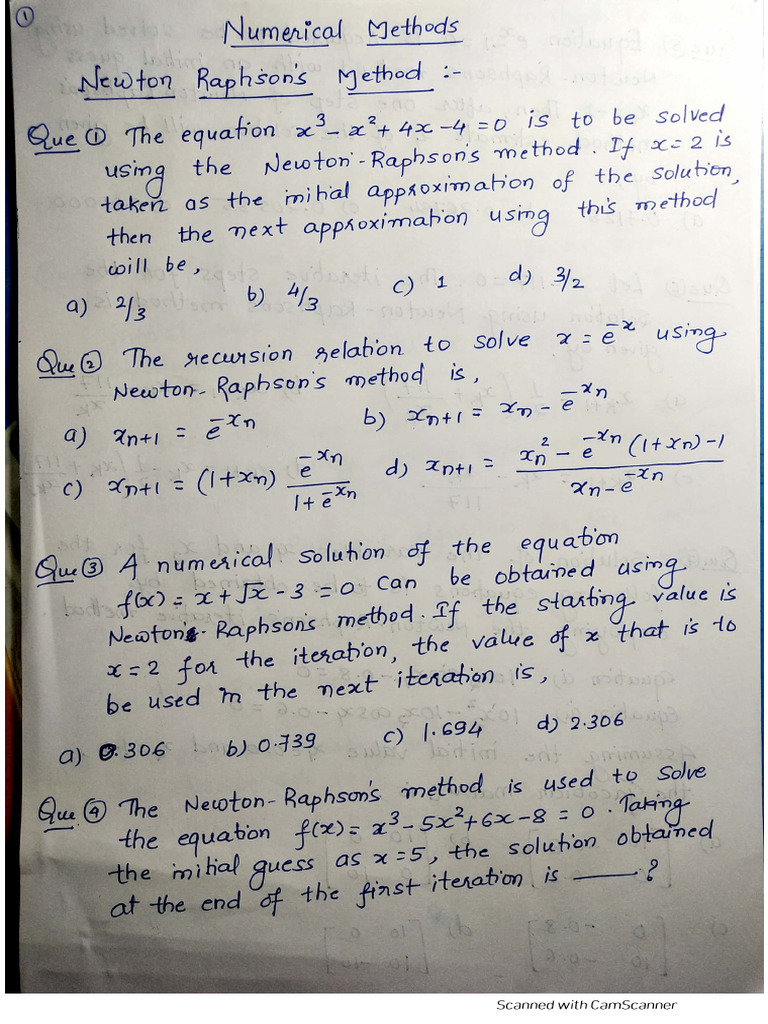 ①
Numerical Methods
Newton Raphson's Method :-
Que ① The equation x³ - x² + 4x - 4 = 0 is to be solved
using the Newton-Raphson's method. If x = 2 is
taken as the initial approximation of the solution,
then the next approximation using this method
will be,
a) 2/3 b) 4/3 c) 1 d) 3/2
Que ② The recursion relation to solve x = e^-x using
Newton-Raphson's method is,
a) xn+1 = e^-xn b) xn+1 = xn - e^-xn
c) xn+1 = (1+xn) e^-xn / 1+e^-xn d) xn+1 = xn² - e^-xn (1+xn) - 1 / xn - e^-xn
Que ③ A numerical solution of the equation
f(x) = x + √x - 3 = 0 can be obtained using
Newton's-Raphson's method. If the starting value is
x = 2 for the iteration, the value of x that is to
be used in the next iteration is,
a) 0.306 b) 0.739 c) 1.694 d) 2.306
Que ④ The Newton-Raphson's method is used to solve
the equation f(x) = x³ - 5x² + 6x - 8 = 0. Taking
the initial guess as x = 5, the solution obtained
at the end of the first iteration is ____ ?
Scanned with CamScanner